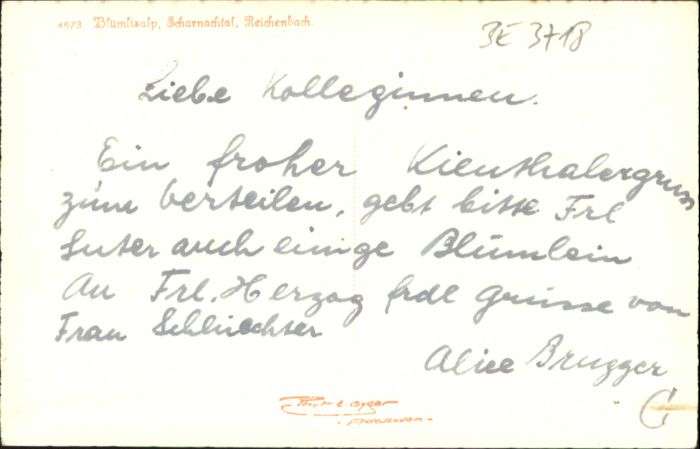 4573 Blümlisalp, Scharnachtal, Reichenbach.
BE 3718
Liebe Kolleginnen.
Ein froher Kienthalergruss
zum verteilen, gebt bitte Frl
Suter auch einige Blümlein
An Frl. Herzog frdl grüsse von
Frau Schlüchter
Alice Brugger